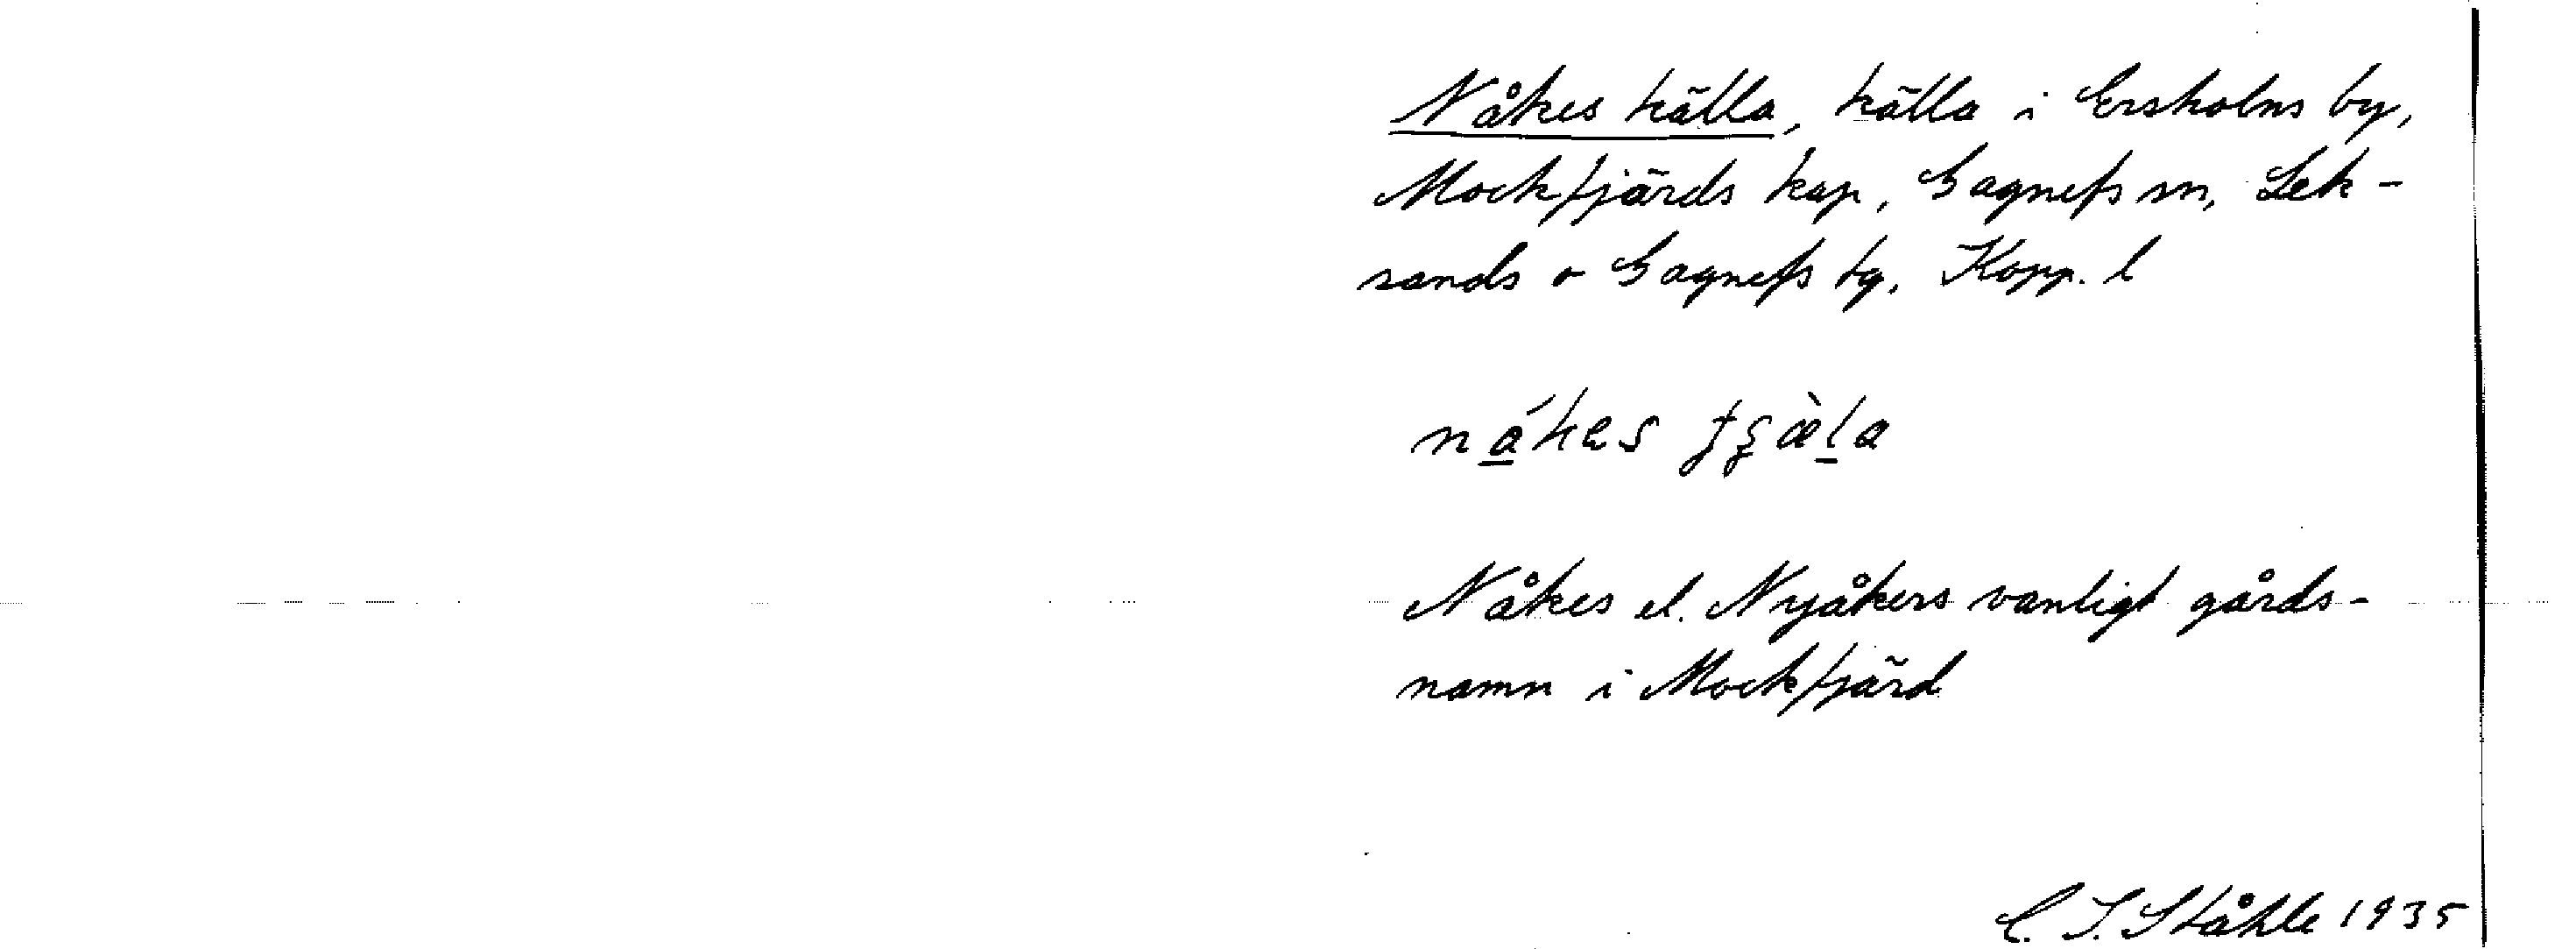 Nåkes källa, källa i Ersholns by,
Mockfjärds kap, Gagnefs sn, Lek-
sands o Gagnefs tg, Kopp. l
Nåkes el. Nyåkers vanligt gårds-
namn i Mockfjärd
C. I. Ståhle 1935